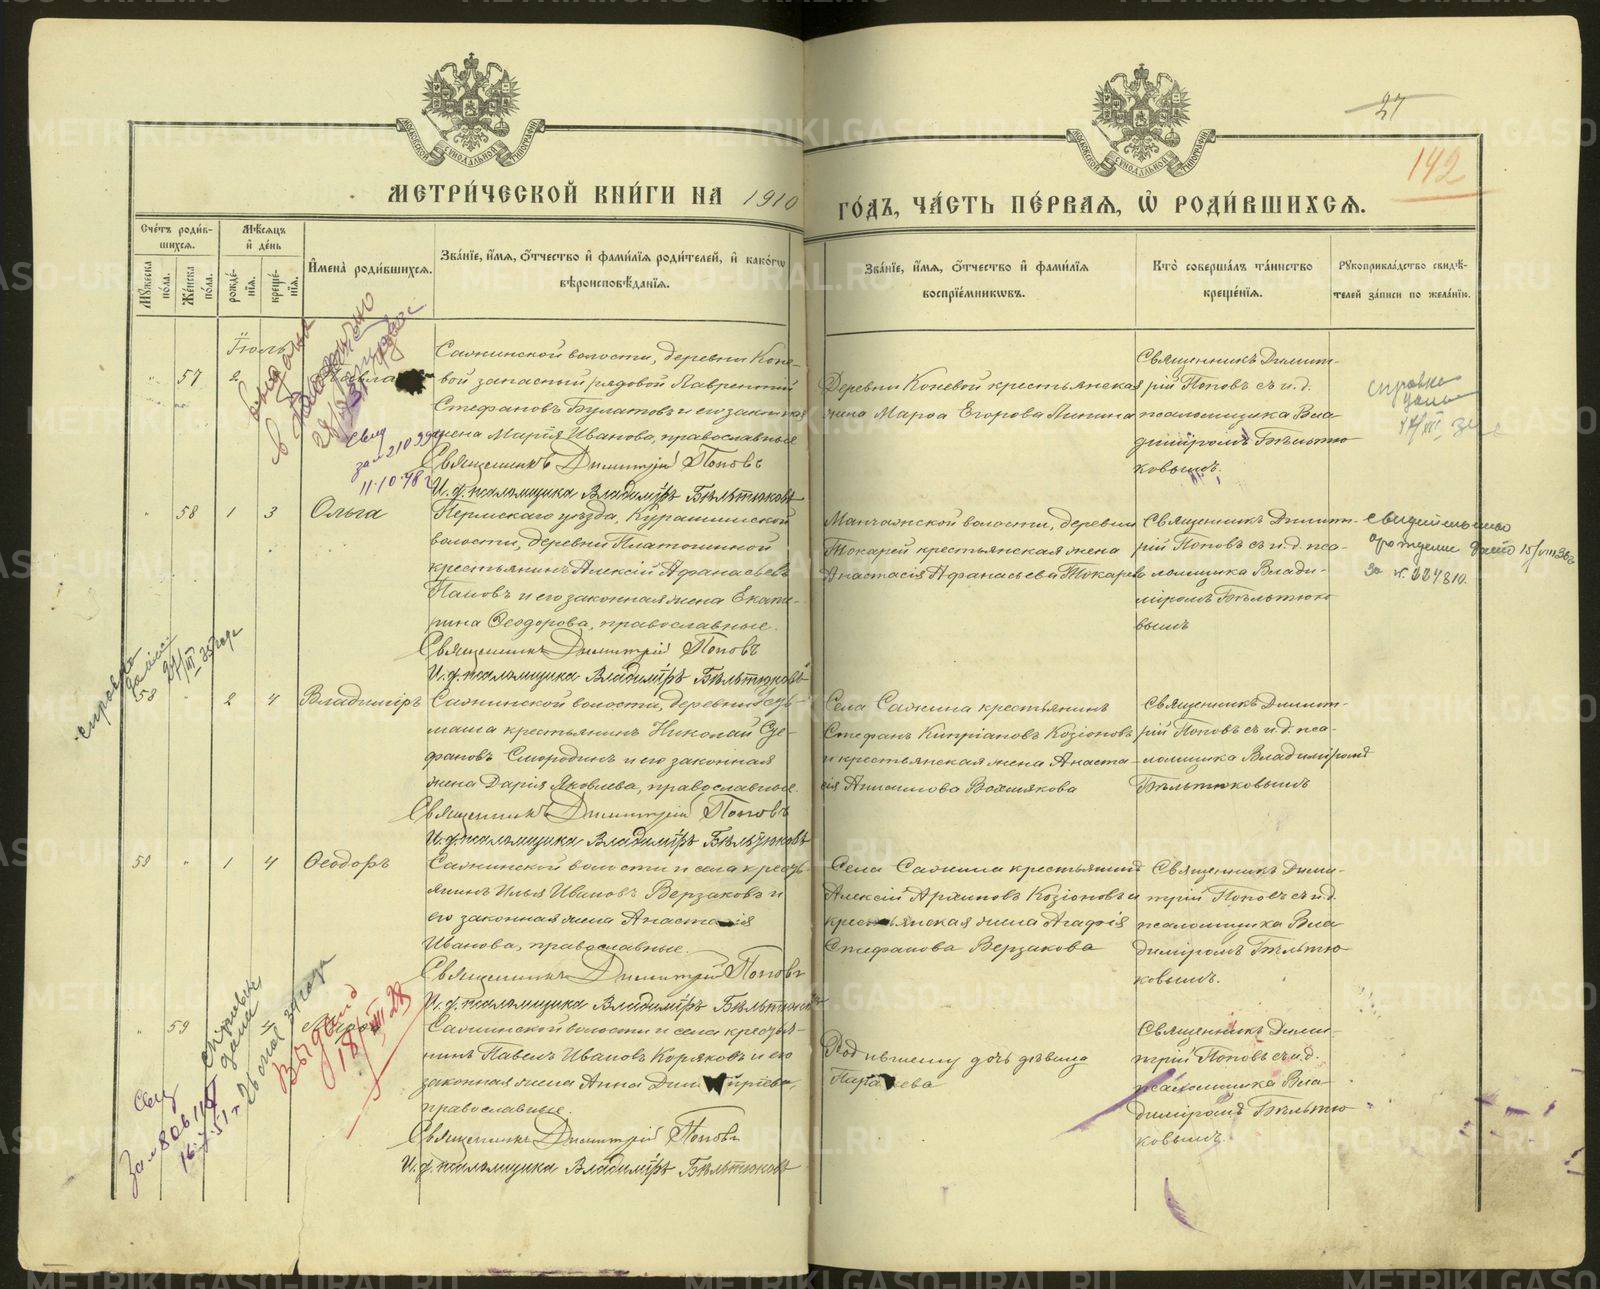 27
142
МЕТРИ́ЧЕСКОЙ КНИ́ГИ НА 1910 ГО́ДЪ, ЧА́СТЬ ПЕ́РВАЯ, Ѡ РОДИ́ВШИХСЯ.
Сче́тъ роди́вшихся.
Мужеска по́ла.
Же́нска по́ла.
Мѣ́сяцъ и де́нь
рожде́нїя.
креще́нїя.
И҆мена̀ роди́вшихся.
Зва́нїе, и҆́мя, ѻ҆́тчество и҆ фами́лїя роди́телей, и҆ како́гѡ вѣроисповѣ́данїя.
Зва́нїе, и҆́мя, ѻ҆́тчество и҆ фами́лїя воспрїе́мникѡвъ.
Кто̀ соверша́лъ та́инство креще́нїя.
Рукоприкла́дство свидѣ́телей за́писи по жела́нїю.
Іюль
57
2
Сажинской волости, деревни Коне-
вой запасный рядовой Лаврентій
Стефановъ Булатовъ и его законная
жена Марія Иванова, православные
Священникъ Димитрій Поповъ
И. д. псаломщика Владиміръ Бѣльтюковъ
Деревни Коневой крестьянская
жена Марѳа Егорова Пинина
Священникъ Димит-
рій Поповъ съ и. д.
псаломщика Вла-
диміромъ Бѣльтю-
ковымъ.
справка
дана
11.10.48 г.
58
1
3
Ольга
Пермскаго уѣзда, Курашимской
волости, деревни Платошиной
крестьянинъ Алексій Аѳанасьевъ
Паповъ и его законная жена Екате-
рина Ѳеодорова, православные.
Священникъ Димитрій Поповъ
И. д. псаломщика Владиміръ Бѣльтюковъ
Манчажской волости, деревни
Токарей крестьянская жена
Анастасія Аѳанасьева Токарева
Священникъ Димит-
рій Поповъ съ и. д. пса-
ломщика Влади-
міромъ Бѣльтюко-
вымъ
свидетельство
о рождение дано 15/VIII 36г
за №. 227810.
справка
58
2
4
Владиміръ
Сажинской волости, деревни
крестьянинъ Николай Сте-
фановъ Смородинъ и его законная
жена Дарія Яковлева, православные.
Священникъ Димитрій Поповъ
И. д. псаломщика Владиміръ Бѣльтюковъ
Села Сажина крестьянинъ
Стефанъ Кипріановъ Козіоновъ
и крестьянская жена Анаста-
сія Вахлякова
Священникъ Димит-
рій Поповъ съ и. д. пса-
ломщика Владиміромъ
Бѣльтюковымъ
59
1
4
Ѳеодоръ
Сажинской волости и села кресть-
янинъ Илья Ивановъ Верзаковъ и
его законная жена Анастасія
Иванова, православные.
Священникъ Димитрій Поповъ
И. д. псаломщика Владиміръ Бѣльтюковъ
Села Сажина крестьянинъ
Алексій Архиповъ Козіоновъ и
крестьянская жена Агафія
Стефанова Верзакова
Священникъ Дими-
трій Поповъ съ и. д.
псаломщика Вла-
диміромъ Бѣльтю-
ковымъ.
59
Сажинской волости и села крестья-
нинъ Павелъ Ивановъ Коряковъ и его
законная жена Анна Димитріева,
православные.
Священникъ Димитрій Поповъ
И. д. псаломщика Владиміръ Бѣльтюковъ
Родившему дочь дѣвица
Параскева
Священникъ Дими-
трій Поповъ съ и. д.
псаломщика Вла-
диміромъ Бѣльтю-
ковымъ.
справка
дана
26 мая 34 года
выдано
METRIKI.GASO-URAL.RU